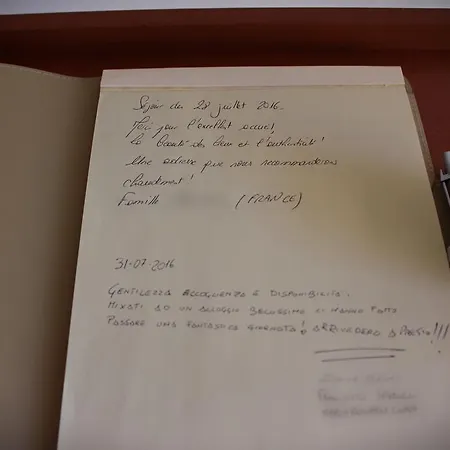 Séjour du 28 juillet 2016.
Merci pour l'excellent accueil,
la beauté des lieux et l'authenticité!
Une adresse que nous recommandons
chaudement!
Famille (FRANCE)
31-07-2016
GENTILEZZA ACCOGLIENZA E DISPONIBILITA'
MIXATI AD UN ALLOGGIO BELLISSIMO CI HANNO FATTO
PASSARE UNA FANTASTICA GIORNATA! ARRIVEDERCI A PRESTO!!!